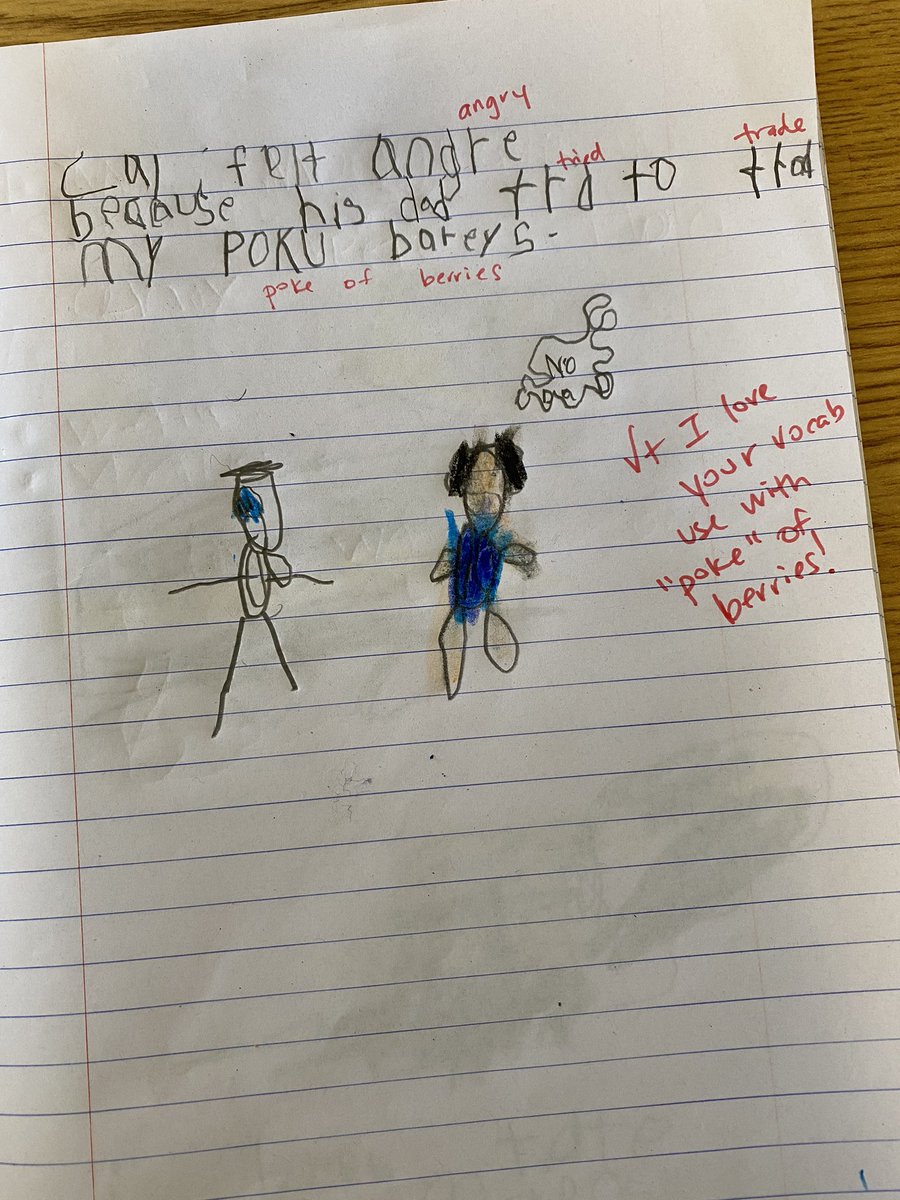 angry
Cal felt angre
tried trade
because his dad trd to trad
my POKU bareys.
poke of berries
No
√+ I love
your vocab
use with
"poke" of
berries!